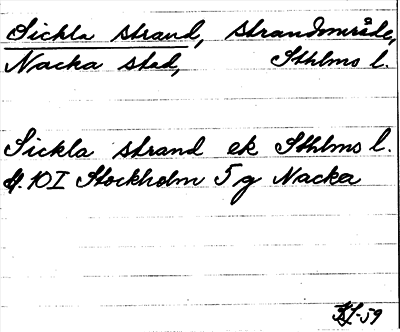 Sickla strand, strandområde,
Nacka stad, Sthlms l.
Sickla strand ek Sthlms l.
10I Stockholm 5 g Nacka
-59